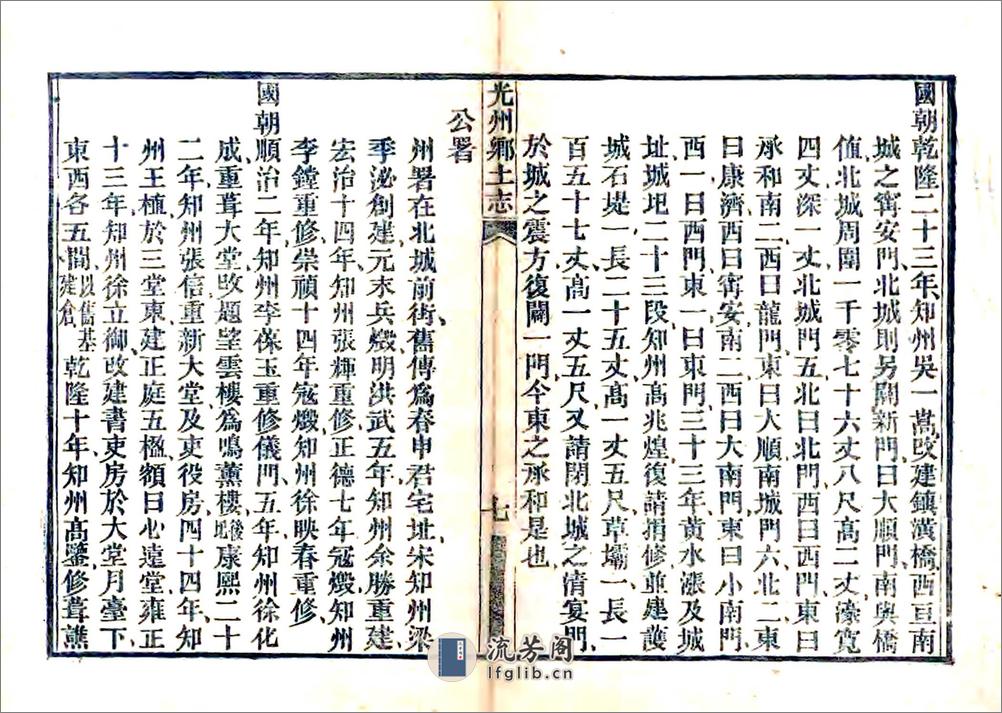 國朝乾隆二十三年知州吳一嵩改建鎮潢橋西亘南
城之甯安門北城則另闢新門曰大順門南與橋
值北城周圍一千零七十六丈八尺高二丈濠寬
四丈深一丈北城門五北曰北門西曰西門東曰
承和南二西曰龍門東曰大順南城門六北二東
曰康濟西曰甯安南二西曰大南門東曰小南門
西一曰西門東一曰東門三十三年黃水漲及城
址城圯二十三段知州高兆煌復請捐修並建護
城石堤一長二十五丈高一丈五尺草壩一長一
百五十七丈高一丈五尺又請閉北城之清宴門
於城之震方復闢一門今東之承和是也
光州鄉土志
七
公署
州署在北城前街舊傳爲春申君宅址宋知州梁
季泌創建元末兵燬明洪武五年知州余勝重建
宏治十四年知州張輝重修正德七年寇燬知州
李鏜重修崇禎十四年寇燬知州徐映春重修
國朝順治二年知州李葆玉重修儀門五年知州徐化
成重葺大堂改題望雲樓爲鳴薰樓後圮康熙二十
二年知州張信重新大堂及吏役房四十四年知
州王植於三堂東建正庭五楹額曰心遠堂雍正
十三年知州徐立御改建書吏房於大堂月臺下
東西各五間以舊基建倉乾隆十年知州高鑒修葺譙
流芳阁
lfglib.cn